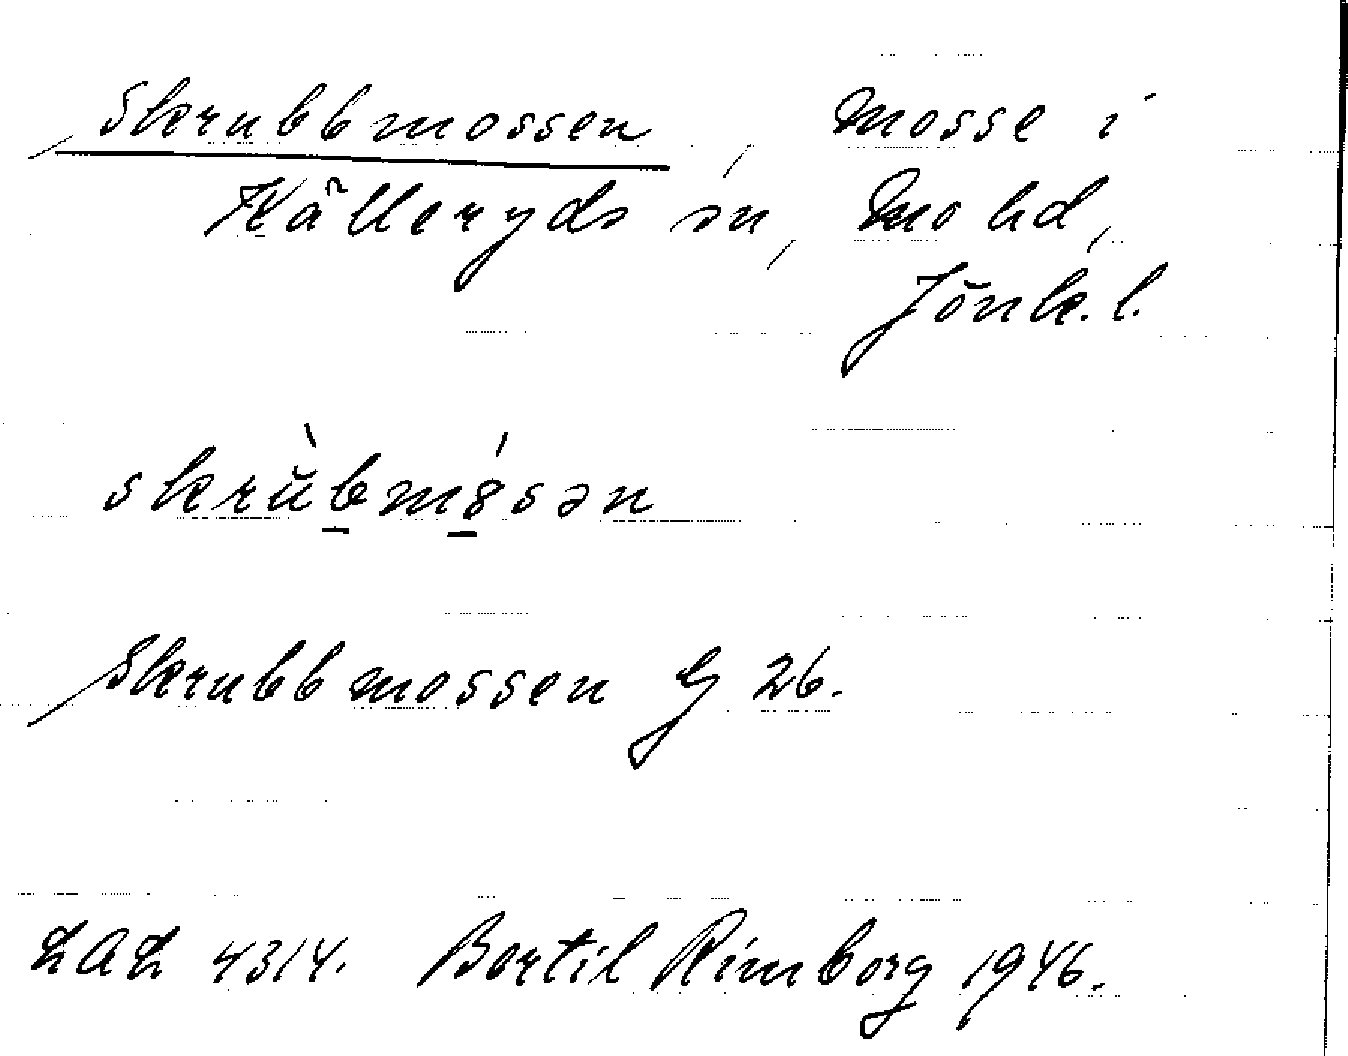 Skrubbmossen, mosse i
Kålleryds sn, Mo hd,
Jönk. l.
skrùbmósən
Skrubbmossen G 26.
LAL 4314. Bertil Rimborg 1946.